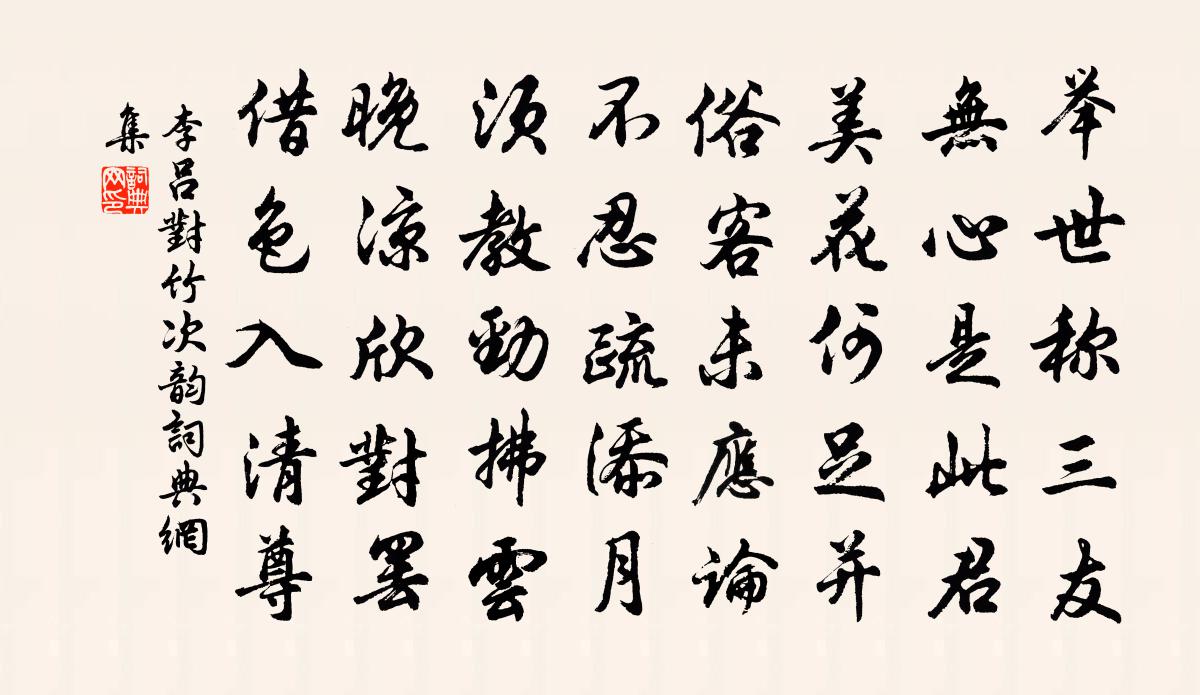 举世称三友
無心是此君
美花何足并
俗客未應論
不忍疏添月
須教勁拂雲
晚涼欣對罢
借色入清尊
李吕對竹次韵詞典網
集
詞典
网印